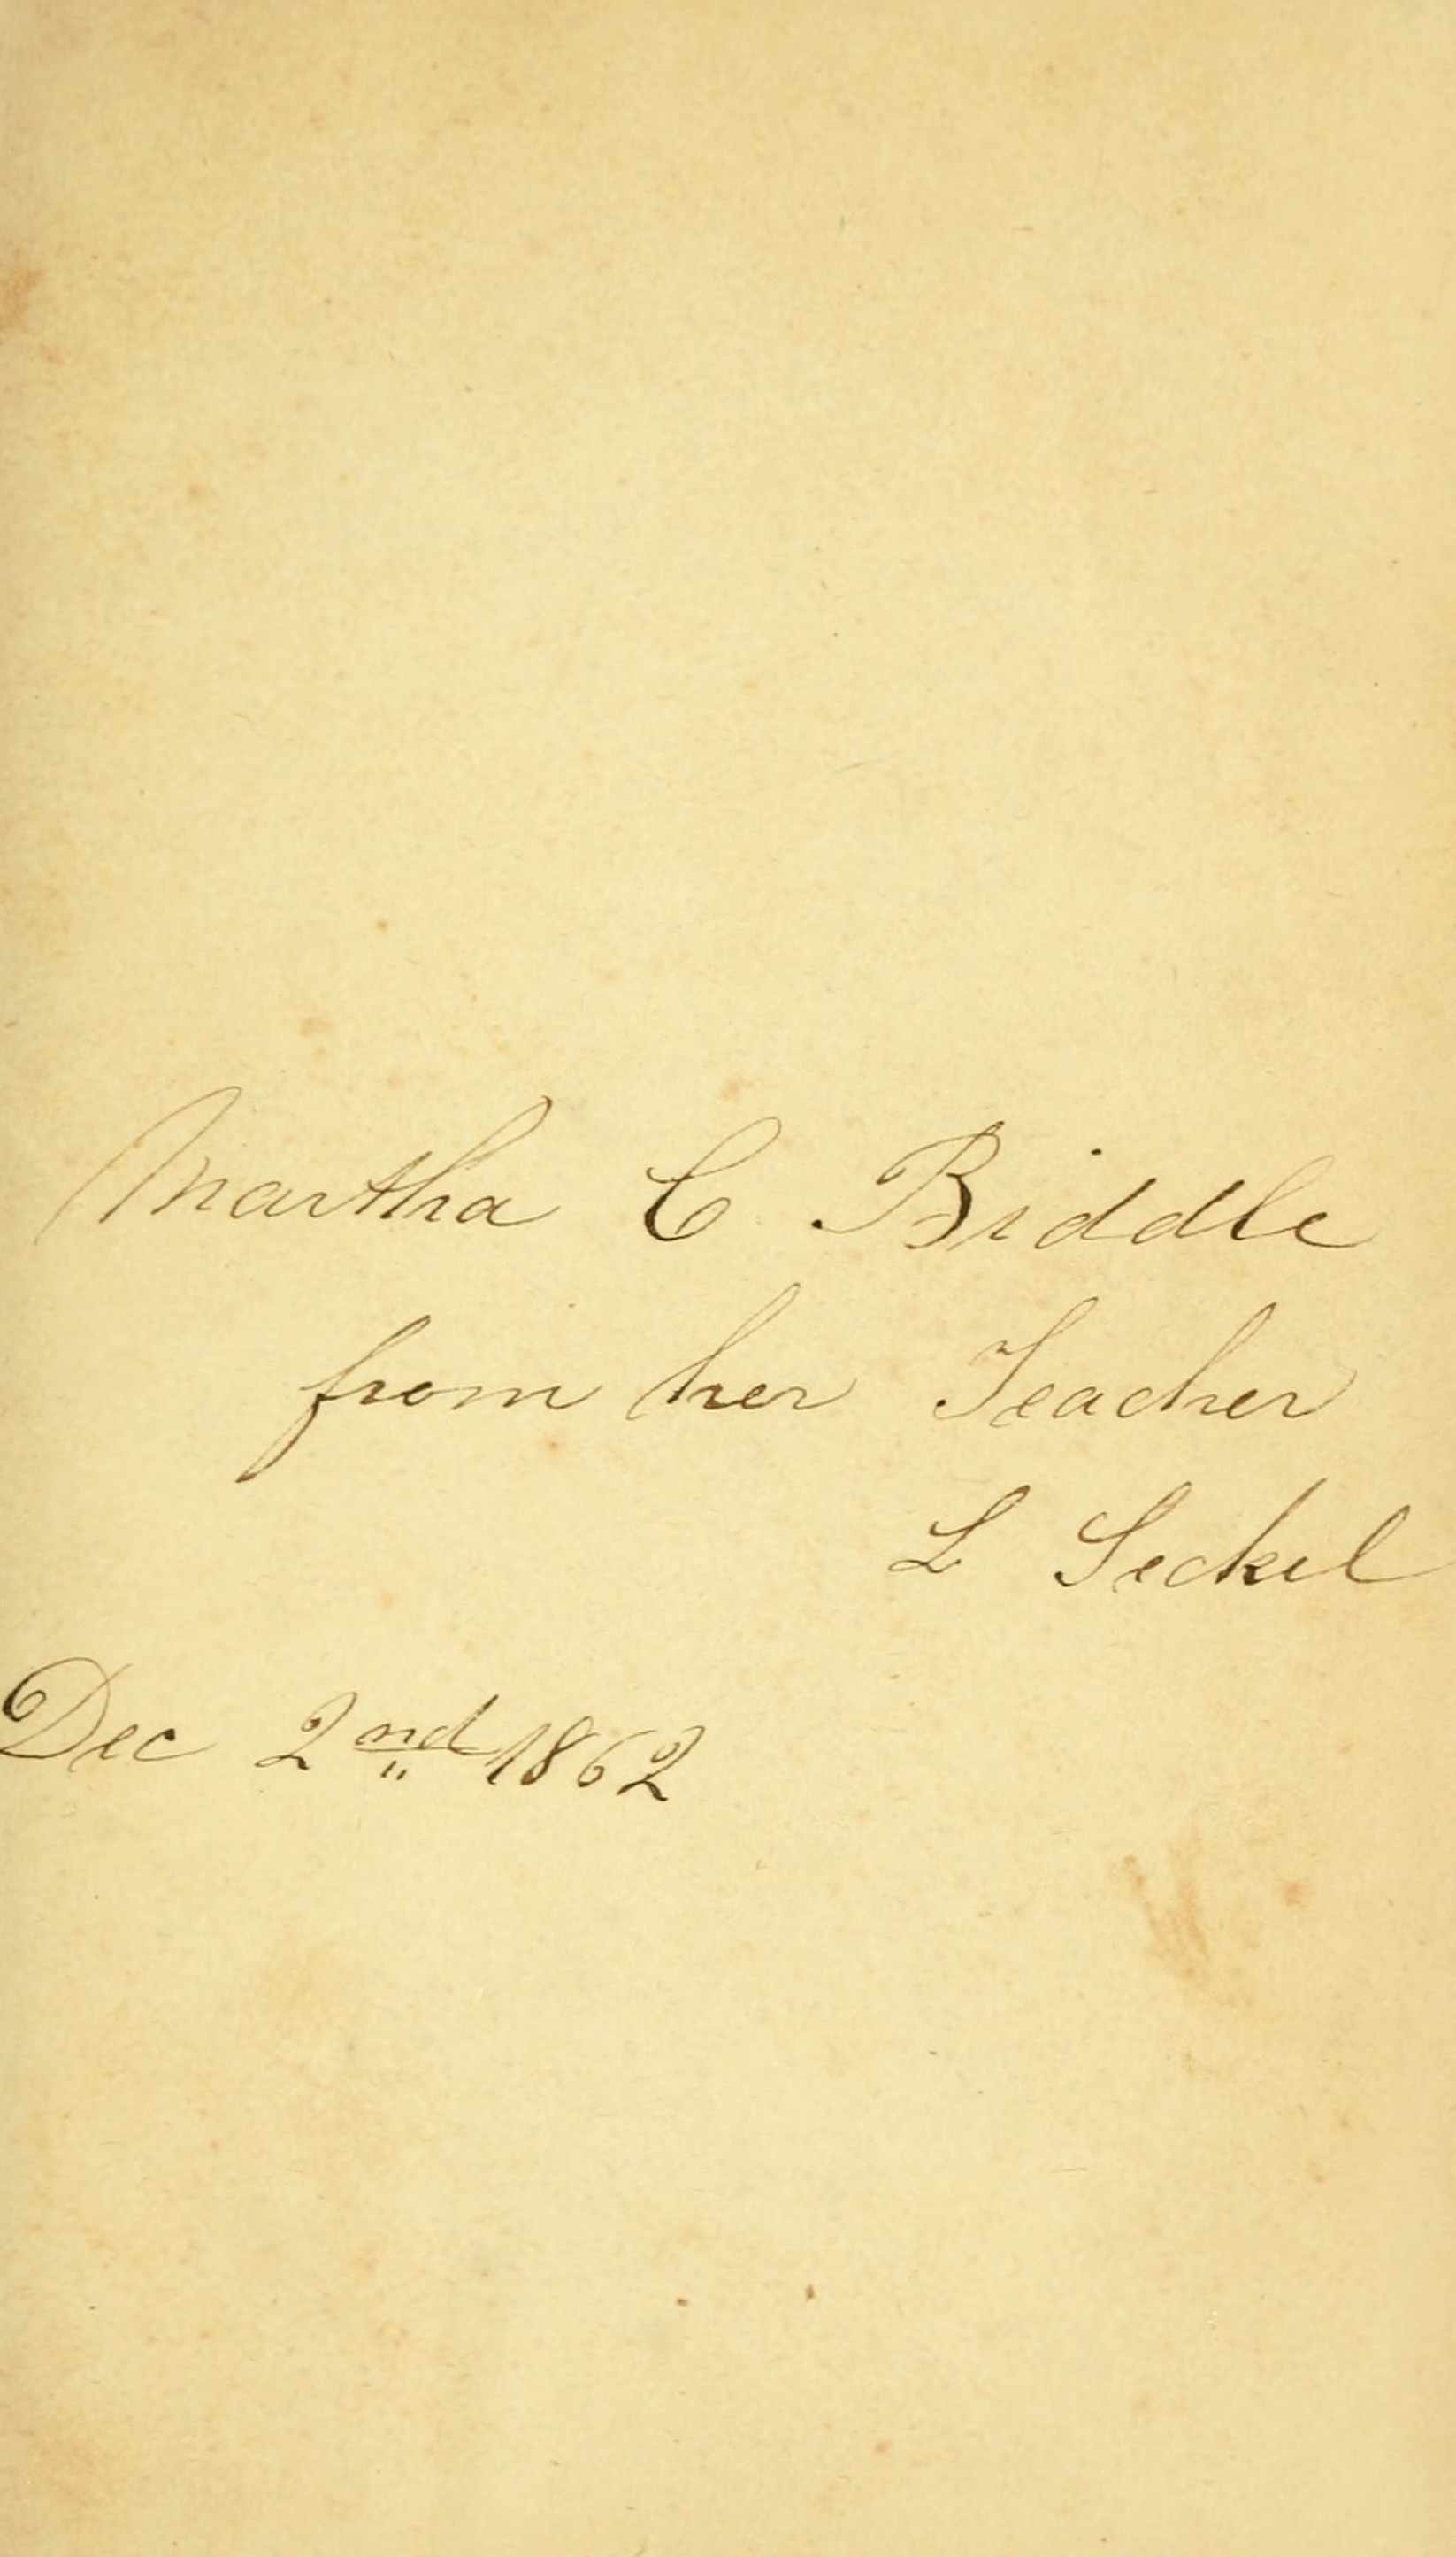 Martha C Biddle
from her Teacher
L Seckel
Dec 2nd 1862